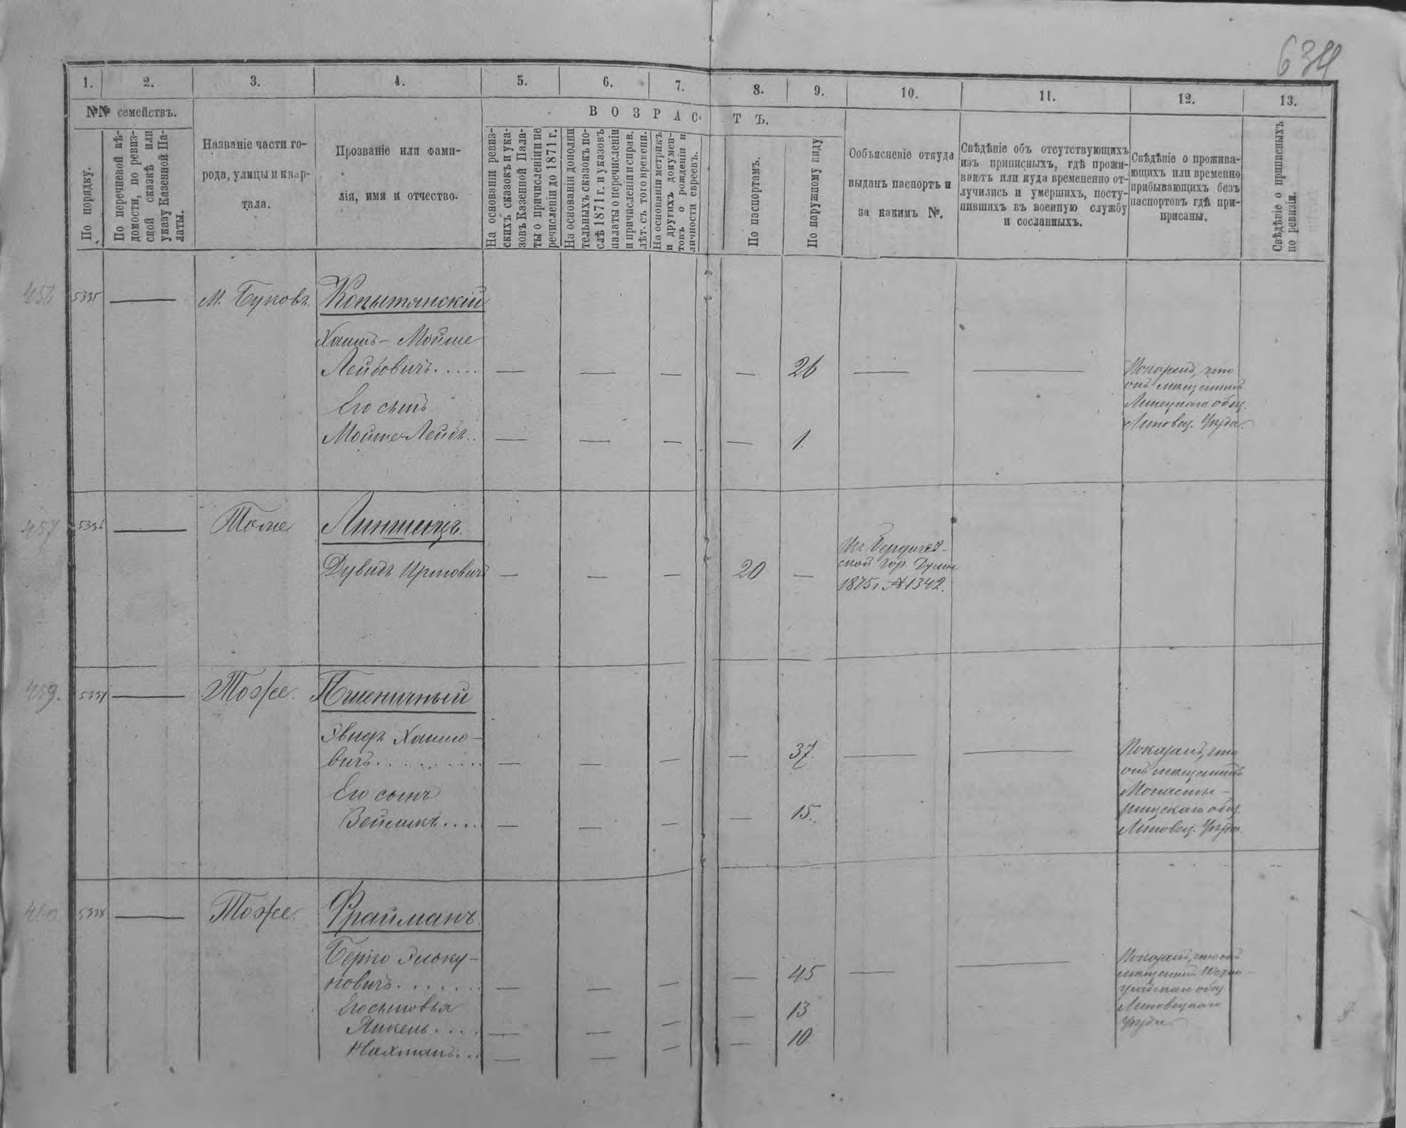 634
1. 2. 3. 4. 5. 6. 7. 8. 9. 10. 11. 12. 13.
№№ семействъ.
По порядку.
По перечневой вѣ-
домости, по ревиз-
ской сказкѣ или
указу Казенной Па-
латы.
Названіе части го-
рода, улицы и квар-
тала.
Прозваніе или фами-
лія, имя и отчество.
ВОЗРАСТЪ.
На основаніи ревиз-
скихъ сказокъ и ука-
зовъ Казенной Пала-
ты о причисленіи и пе
речисленіи до 1871 г.
На основаніи дополни
тельныхъ сказокъ по-
слѣ 1871 г. и указовъ
палаты о перечисленіи
и причисленіи и справ.
лѣт. съ того времени.
На основаніи метрикъ
и другихъ докумен-
товъ о рожденіи и
личности евреевъ.
По паспортамъ.
По наружному виду
Объясненіе откуда
выданъ паспортъ и
за какимъ №.
Свѣдѣніе объ отсутствующихъ
изъ приписныхъ, гдѣ прожи-
ваютъ или куда временно от-
лучились и умершихъ, посту-
пившихъ въ военную службу
и сосланныхъ.
Свѣдѣніе о прожива-
ющихъ или временно
прибывающихъ безъ
паспортовъ гдѣ при-
писаны.
Свѣдѣніе о приписныхъ
по ревизіи.
5335 — м. Буковъ. Копытянскій
Хаимъ-Мойше
Лейбовичъ..... — — — — 26 — — Показалъ, что
онъ мѣщанинъ
общ.
Липовец. Уѣзда
Его сынъ
Мойше-Лейбъ.. — — — — 1.
457 5336 — Тоже Липшицъ.
Дувидъ — — — 20 — Из Бердичев-
ской Гор. Думы
1875 г. №1342.
459. 5337 — Тоже. Пшеничный
Хаимо-
вичъ........ — — — — 37. — — Показалъ, что
онъ мѣщанинъ
Монасты-
рищскаго общ.
Липовец. Уѣзда
Его сынъ
.... — — — — 15.
460 5338 — Тоже. Фрайманъ
новичъ....... — — — — 45 — — Показалъ, что онъ
мѣщанинъ
общ
Липовецкаго
Уѣзда
Его сыновья
Янкель.... — — — — 13
Нахманъ... — — — — 10